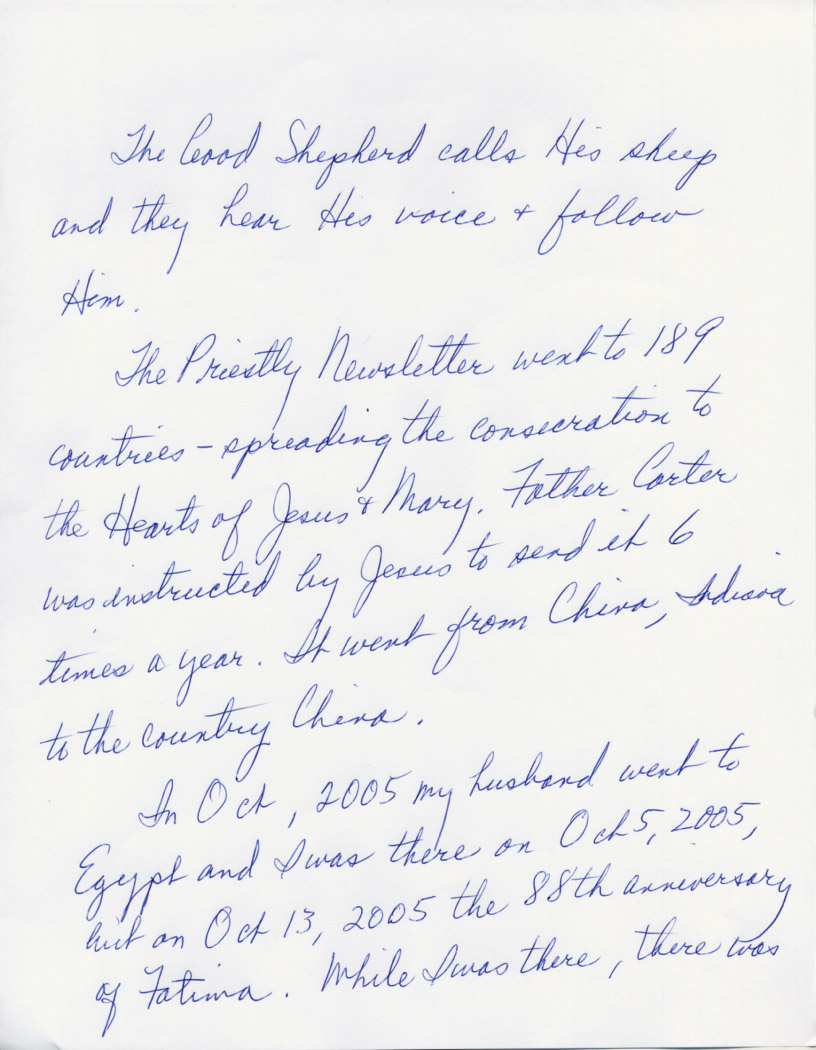 The Good Shepherd calls His sheep
and they hear His voice + follow
Him.
The Priestly Newsletter went to 189
countries - spreading the consecration to
the Hearts of Jesus + Mary. Father Carter
was instructed by Jesus to send it 6
times a year. It went from China, Indiana
to the country China.
In Oct, 2005 my husband went to
Egypt and I was there on Oct 5, 2005,
but on Oct 13, 2005 the 88th anniversary
of Fatima. While I was there, there was